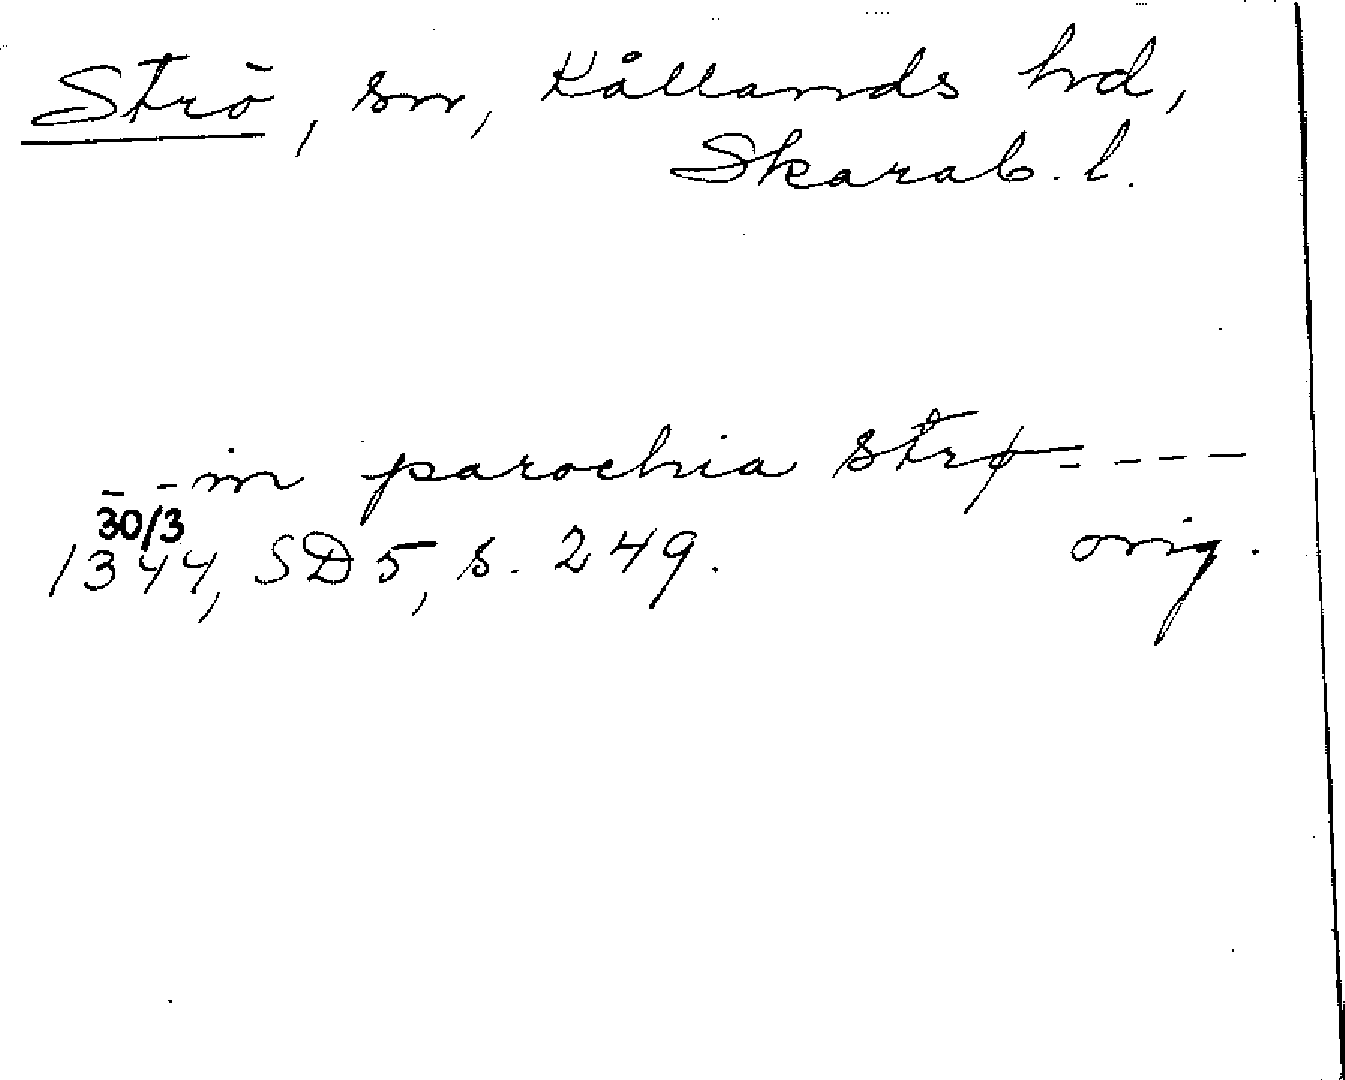 Strö, sn, Kållands hd,
Skarab. l.
- - in parochia strø - - - -
30/3
1344, SD 5, s. 249. orig.